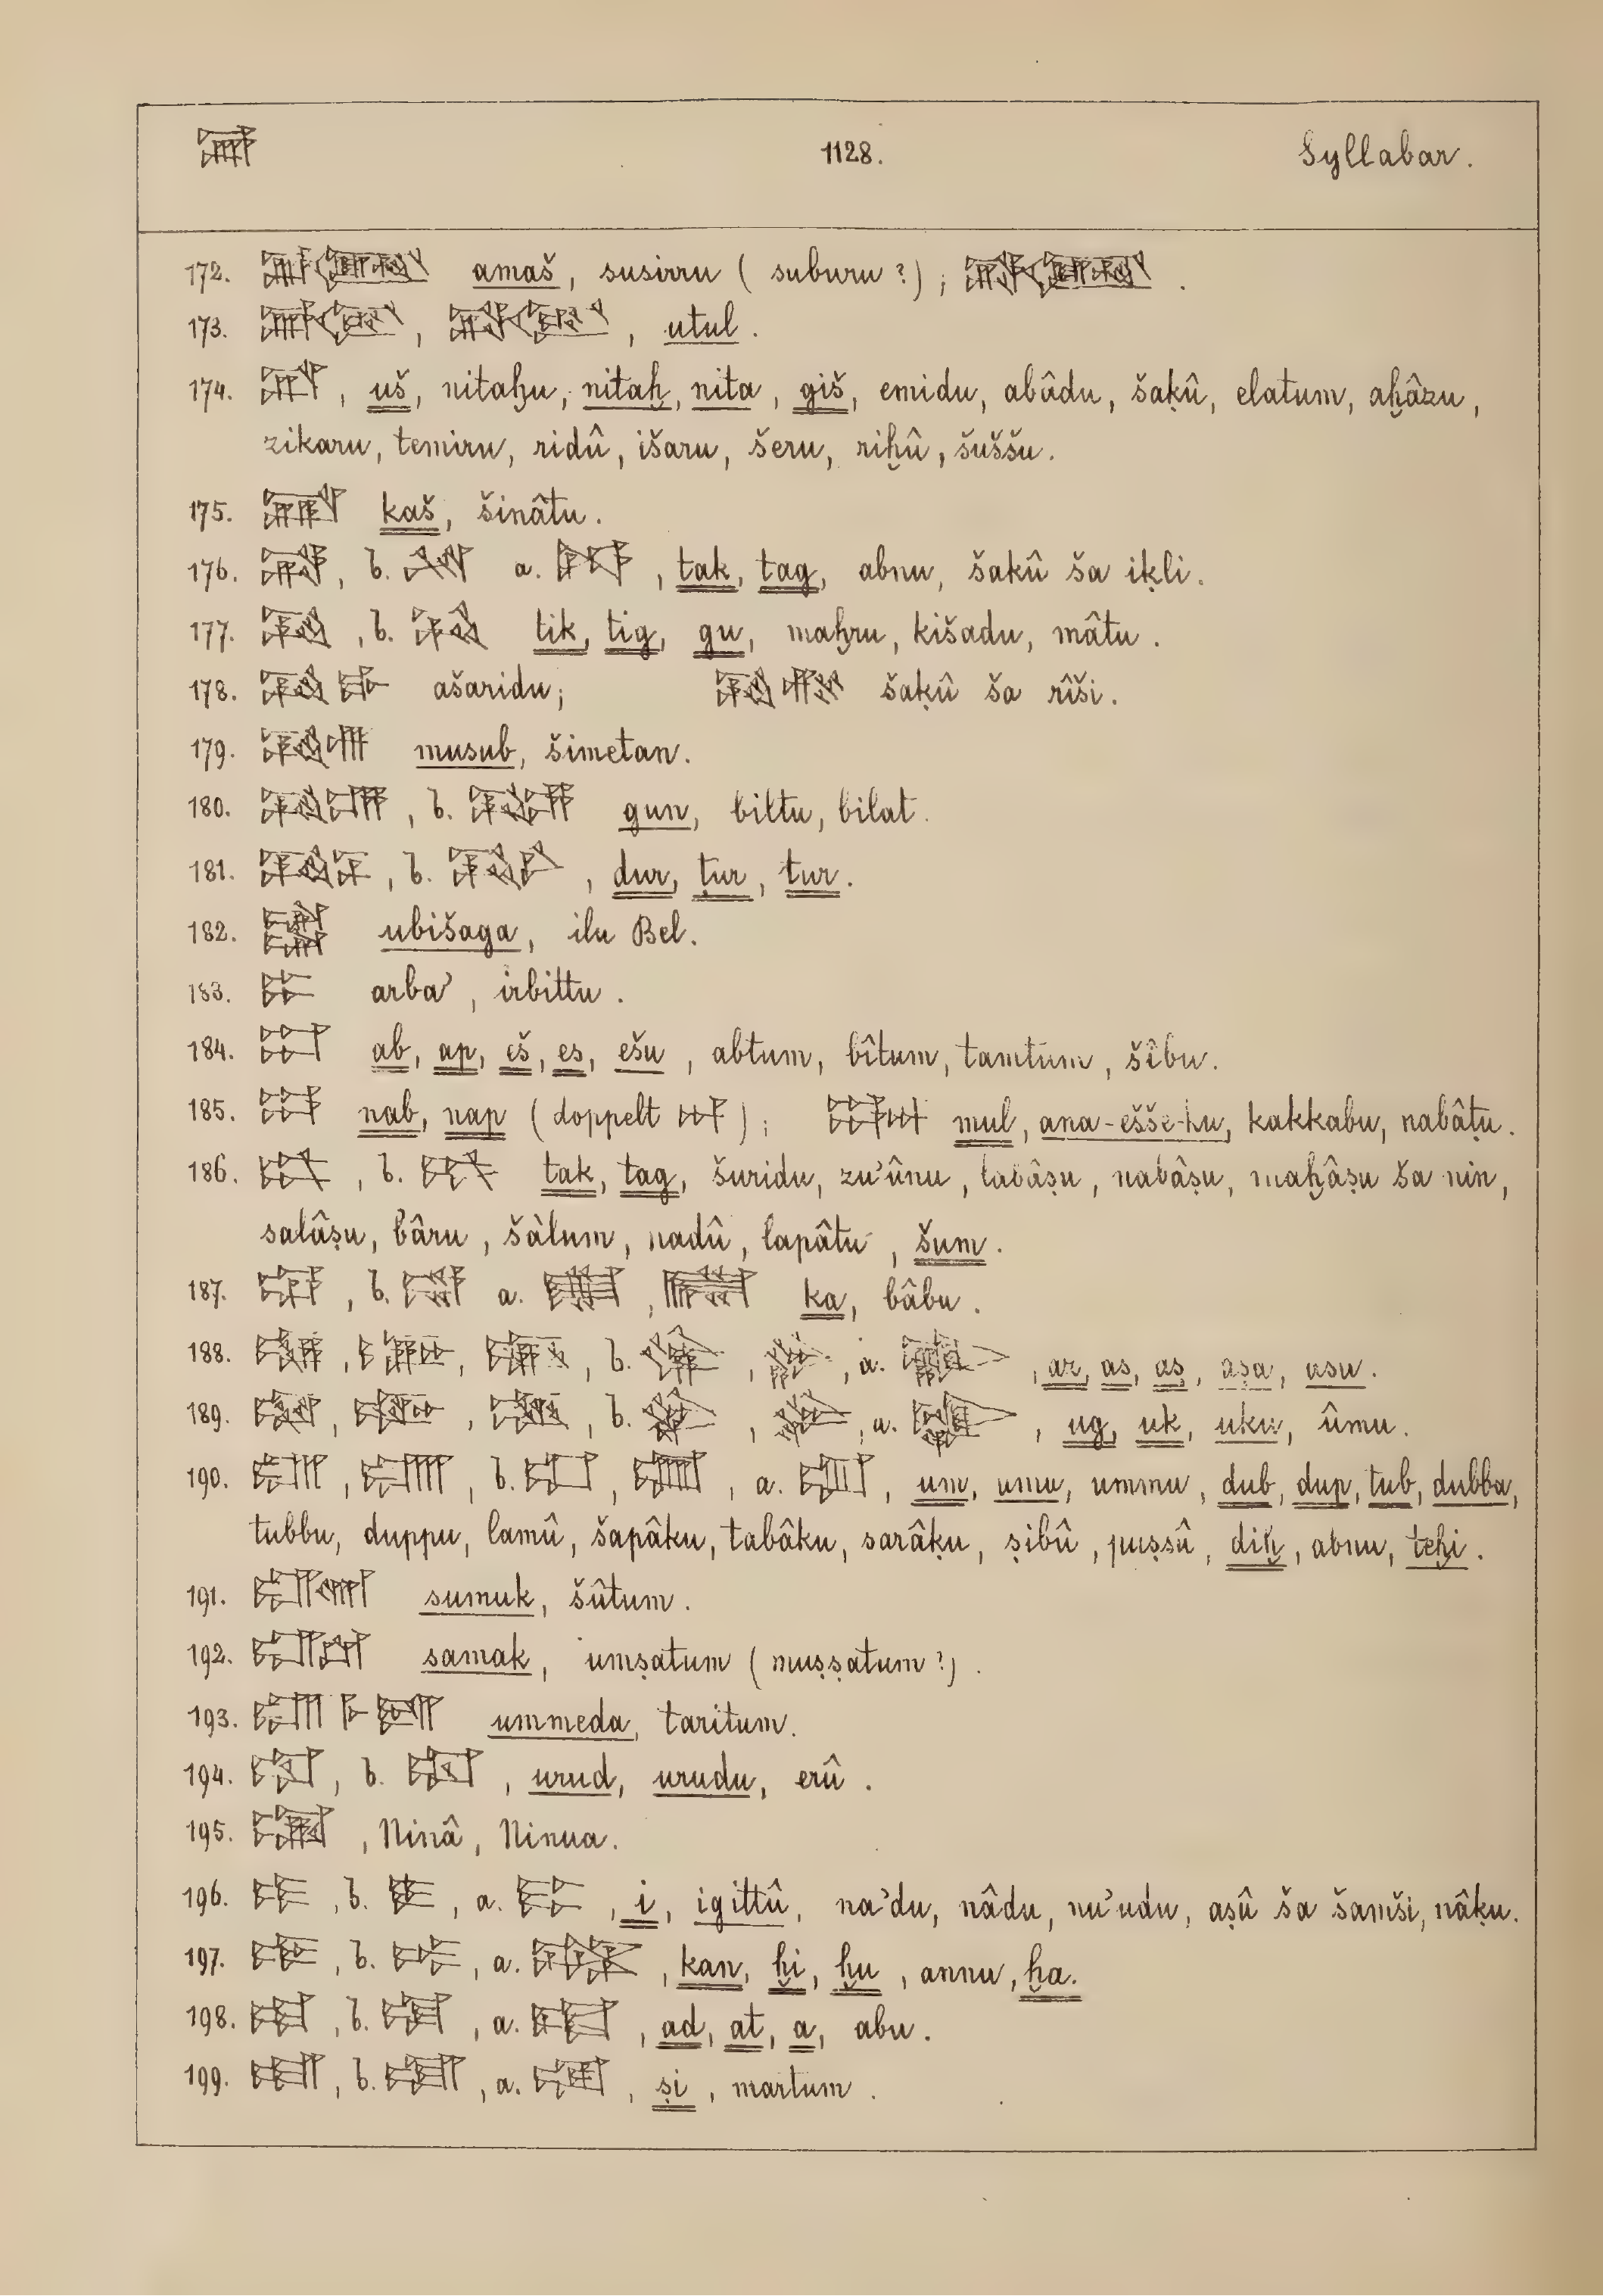 1128. Syllabar.
172. amaš, susirru (suburu?); .
173. , , utul.
174. , uš, nitaḫu, nitaḫ, nita, giš, emidu, abâdu, šaḳû, elatum, aḫâzu,
zikaru, temiru, ridû, išaru, šeru, riḫû, šuššu.
175. kaš, šinâtu.
176. , b. a. , tak, tag, abnu, šakû ša iḳli.
177. , b. tik, tig, gu, maḫru, kišadu, mâtu.
178. ašaridu; šaḳû ša rîši.
179. musub, šimetan.
180. , b. gun, biltu, bilat.
181. , b. , dur, ṭur, tur.
182. ubišaga, ilu Bel.
183. arba', irbittu.
184. ab, ap, eš, es, ešu, abtum, bîtum, tamtum, šîbu.
185. nab, nap (doppelt ); mul, ana-ešše-ku, kakkabu, nabâṭu.
186. , b. tak, tag, šuridu, zu'ûnu, labâṣu, nabâṣu, maḫâṣu ša nin,
salâṣu, bâru, šàlum, nadû, lapâtu, šum.
187. , b. a. , ka, bâbu.
188. , , , b. , , a. , az, as, aṣ, aṣa, asu.
189. , , , b. , , a. , ug, uk, uku, ûmu.
190. , , b. , , a. , um, umu, ummu, dub, dup, tub, dubba,
tubbu, duppu, lamû, šapâku, tabâku, sarâḳu, ṣibû, puṣṣû, diḫ, abnu, teḫi.
191. sumuk, šûtum.
192. samak, umṣatum (muṣṣatum?).
193. ummeda, taritum.
194. , b. , urud, urudu, erû.
195. , Ninâ, Ninua.
196. , b. , a. , i, igittû, na'du, nâdu, nu'udu, aṣû ša šamši, nâḳu.
197. , b. , a. , kan, ḫi, ḫu, annu, ḫa.
198. , b. , a. , ad, at, a, abu.
199. , b. , a. , ṣi, martum.